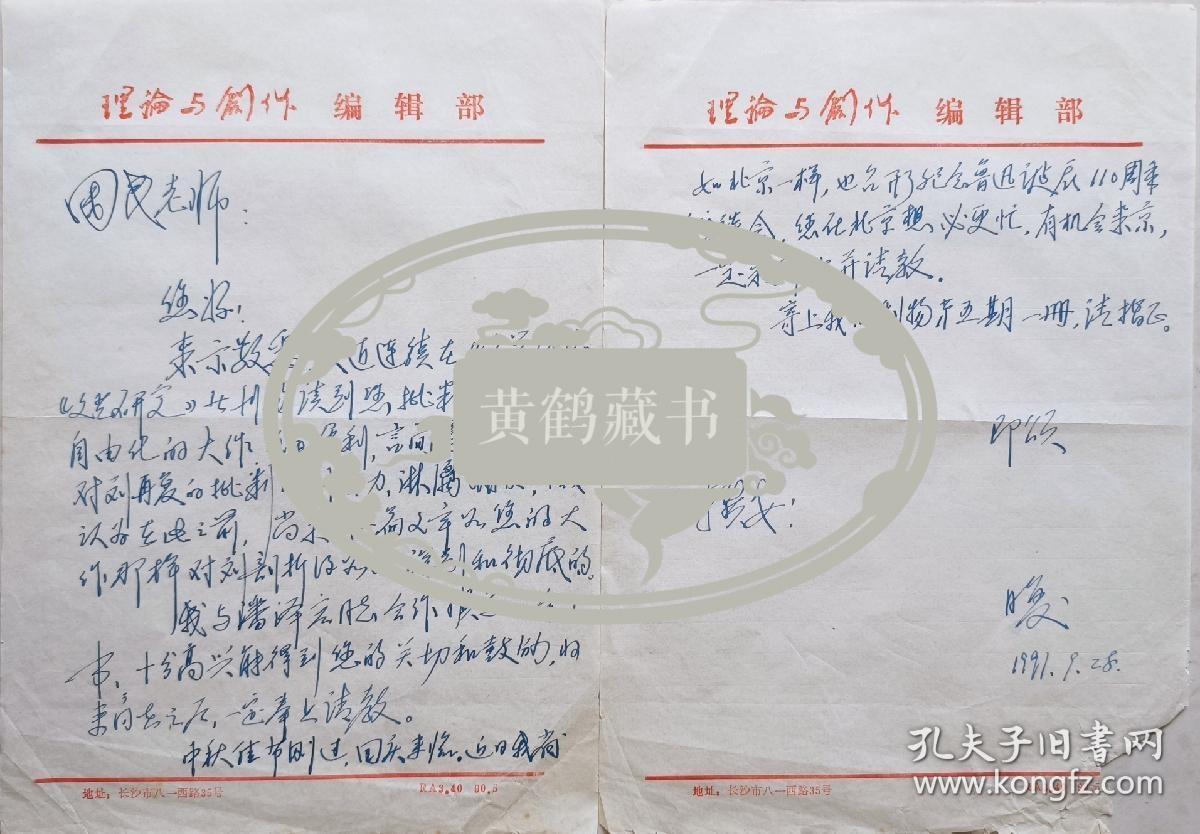 理论与创作 编辑部
国民老师：
您好！
来示敬悉
《文艺研究》此刊 谈到您批判
自由化的大作 利，言简
对刘再复的批判 力，淋漓
认为在此之前，尚未 篇文章如您的大
作那样对刘剖析得如 和彻底的。
我与潘泽宏同志合作
书，十分高兴能得到您的关切和鼓励，将
来问世之后，一定奉上请教。
中秋佳节刚过，国庆来临。近日我省
地址：长沙市八一西路35号
RA3.40 90.5
理论与创作 编辑部
如北京一样，也召开纪念鲁迅诞辰110周年
会，您在北京想必更忙，有机会来京，
一定 并请教。
寄上我 刊物第五期一册，请指正。
即颂
安！
1991.9.28.
地址：长沙市八一西路35号
黄鹤藏书
孔夫子旧书网
www.kongfz.com